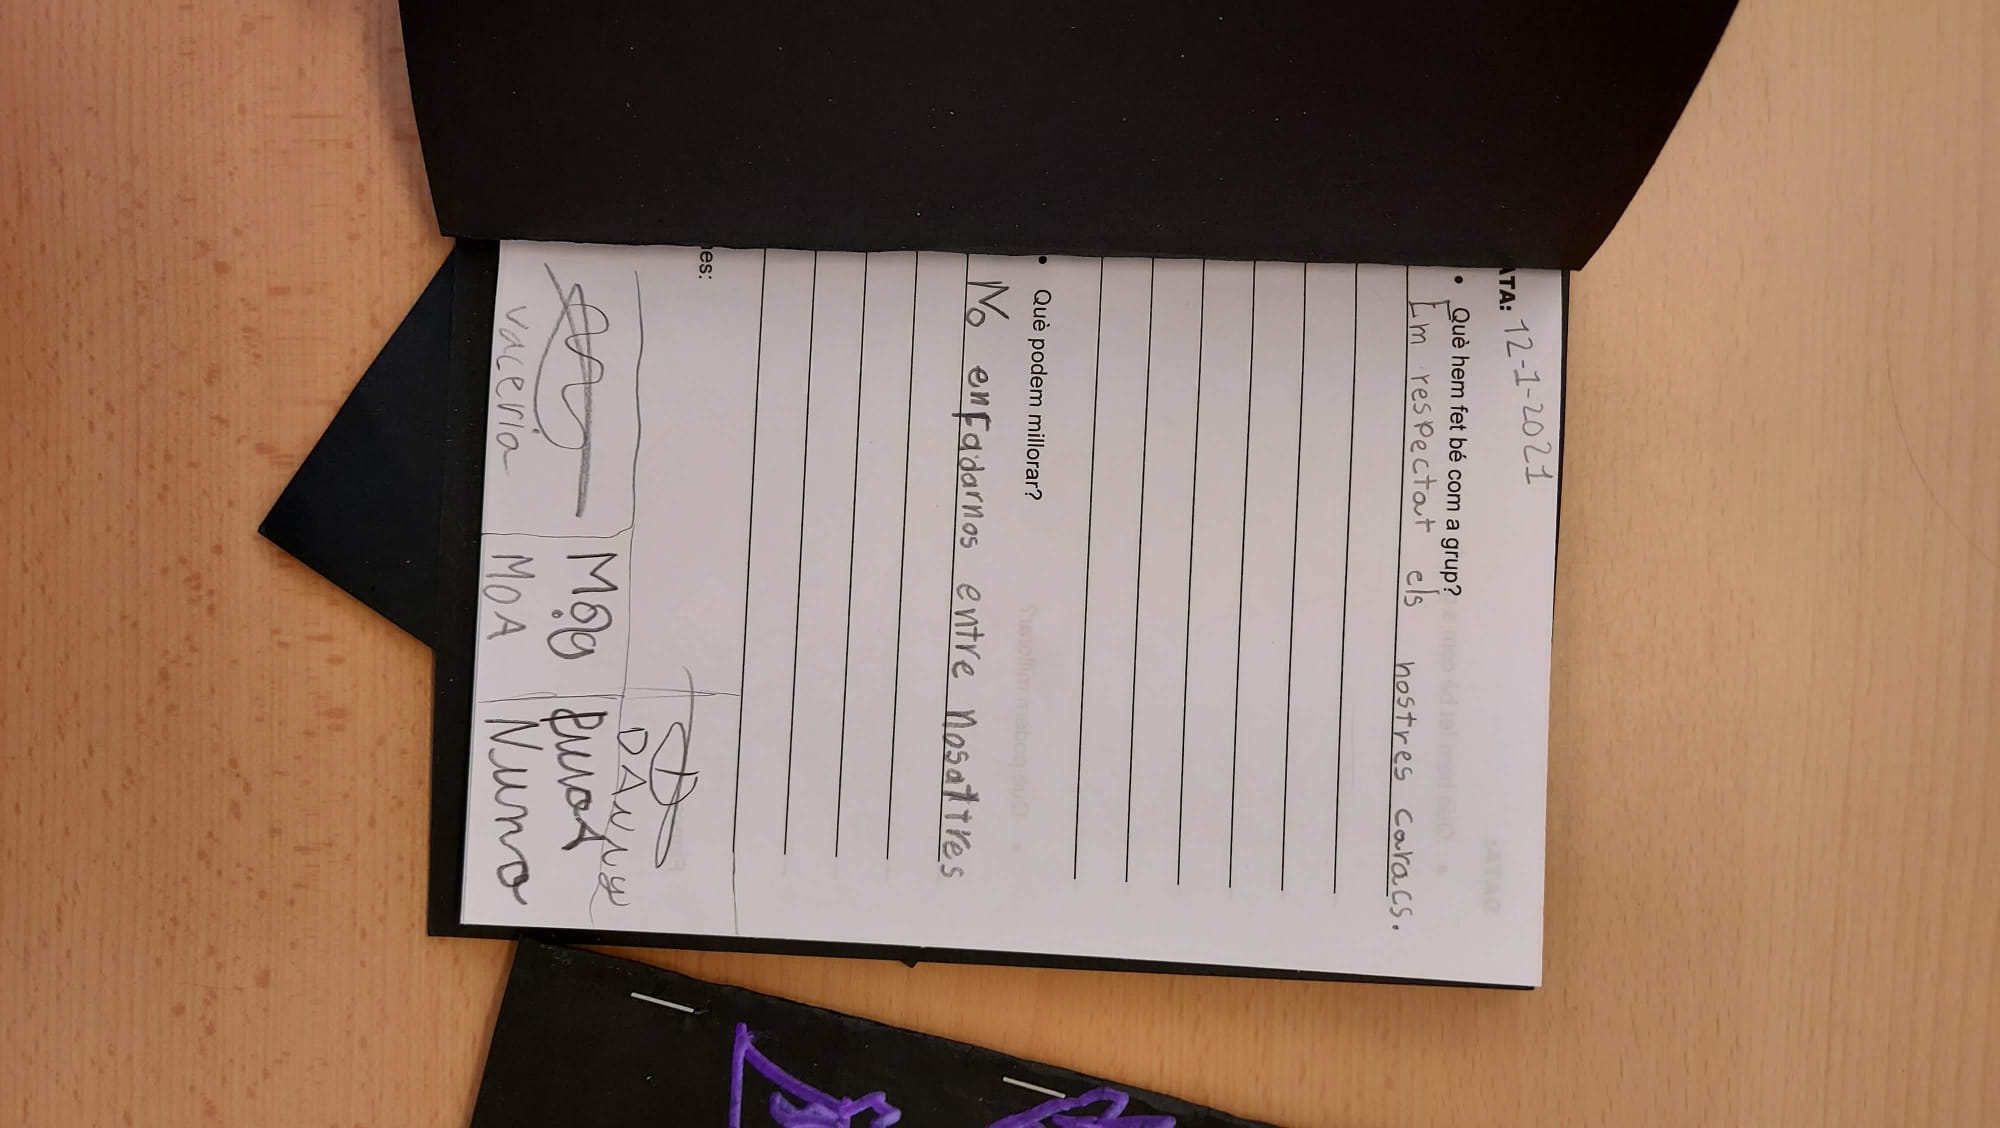 ATA: 12-1-2021
• Què hem fet bé com a grup?
Em respectat els nostres caracs.
• Què podem millorar?
No enfadarnos entre nosaltres
es:
DANNY
Nuno
MOA
vaceria